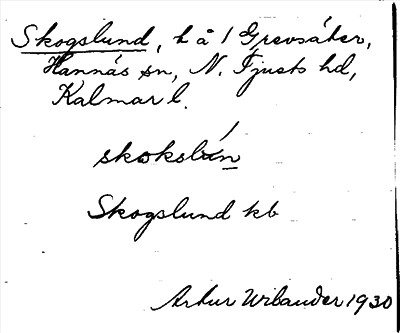 Skogslund, t å 1 Grevsåker,
Hannäs sn, N. Tjusts hd,
Kalmar l.
skokslún
Skogslund kb
Artur Wilander 1930